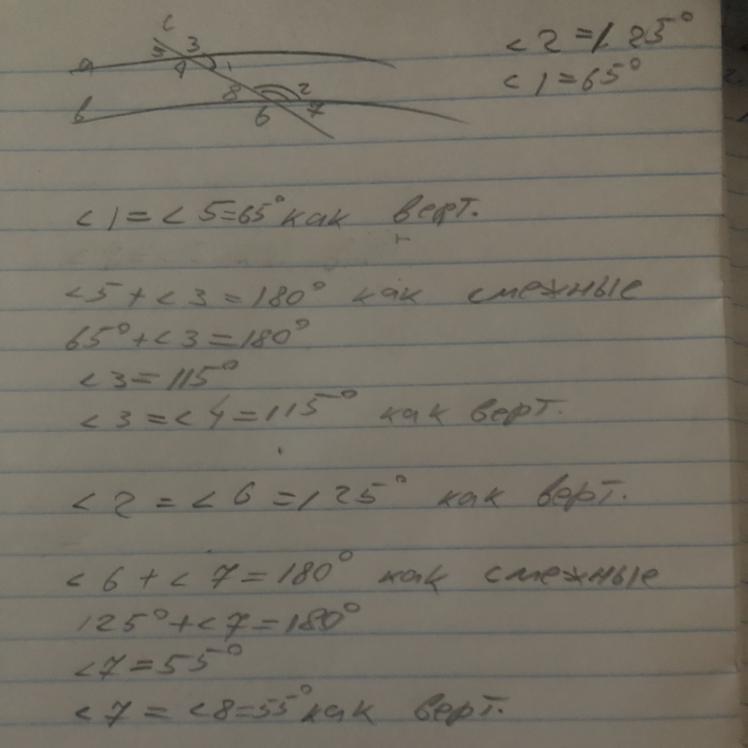 c
5 3
a 4 1
8 2
b 6 7
<2 = 125°
<1 = 65°
<1 = <5 = 65° как верт.
<5 + <3 = 180° как смежные
65° + <3 = 180°
<3 = 115°
<3 = <4 = 115° как верт.
<2 = <6 = 125° как верт.
<6 + <7 = 180° как смежные
125° + <7 = 180°
<7 = 55°
<7 = <8 = 55° как верт.